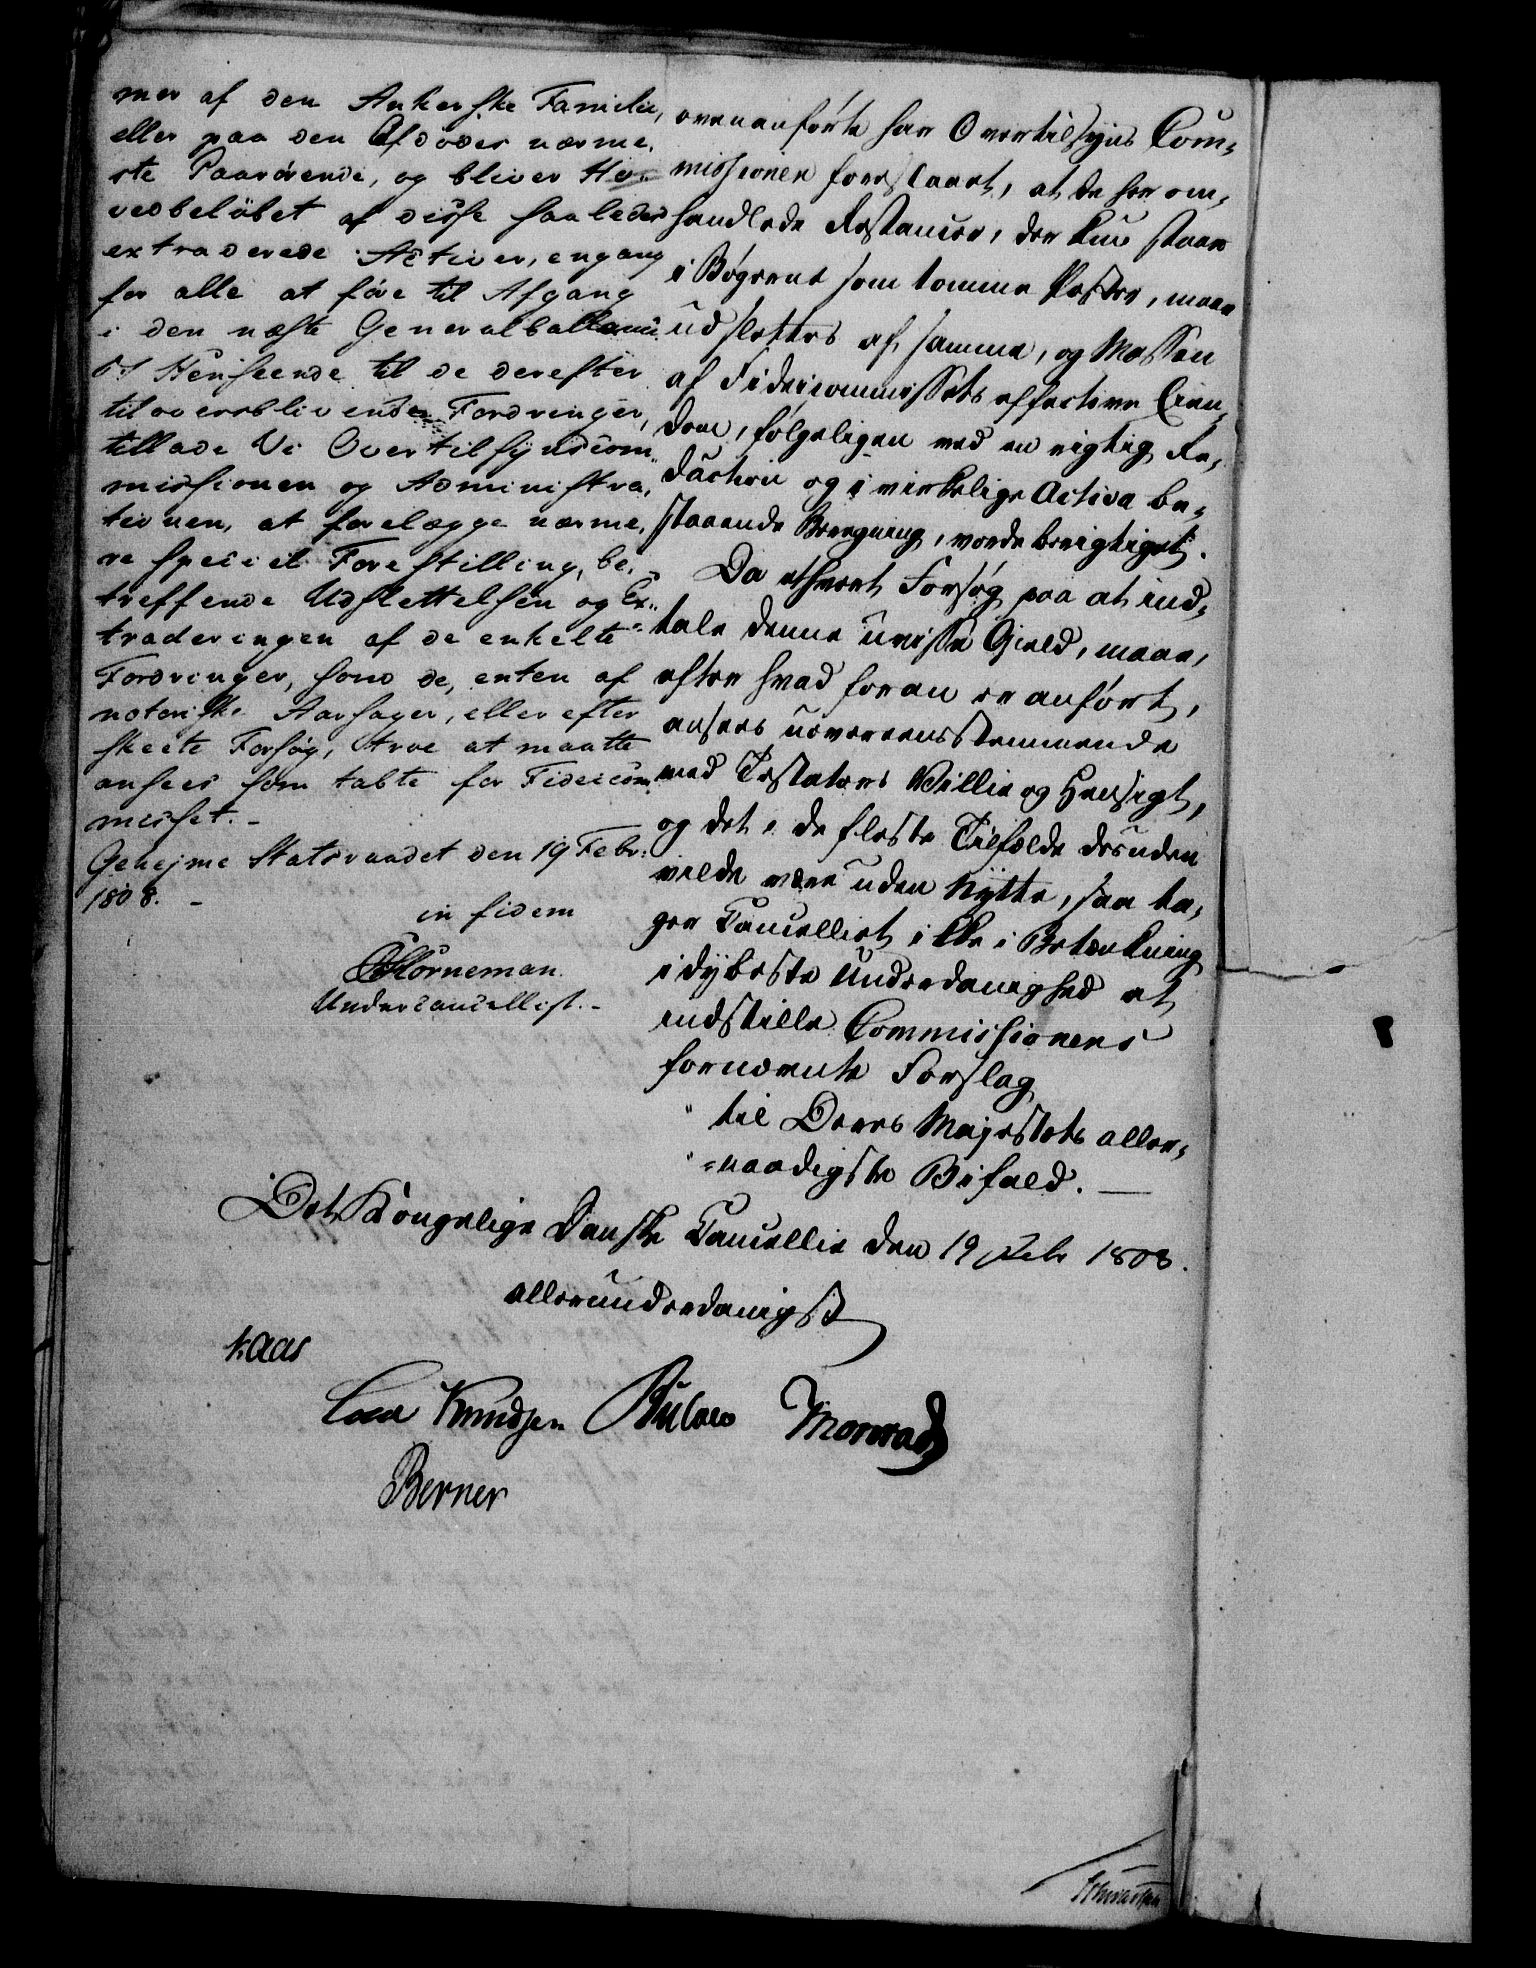 mer af den Ankerske Familie,
eller paa den Afdødes nærme,
ste Paarørende, og bliver Ho,
vedbeløbet af disse saaledes
extraderede Activer, engang
for alle at føre til Afgang
i den næste Generalballance.
I Henseende til de derefter
tiloversblivende Fordringer,
tillade Vi Overtilsynscom,,
missionen og Administra,
tionen, at forelægge nærme,
re speciel Forestilling, be,
treffende Udslettelsen og Ex,,
traderingen af de enkelte
Fordringer, som de, enten af
notoriske Aarsager, eller efter
skeete Forsøg, troe at maatte
ansees som tabte for Fideicom,
misset. -
Geheime Statsraadet den 19 Febr:
1808. -
in fidem
Horneman.
Undercancellist. -
ovenanførte har Overtilsyns Com,
missionen forestaaet, at de her om,
handlede Restancer, der kun staae
i Bøgerne som tomme Poster, maae
udslettes af samme, og Massen
af Fideicommissets effective Eien,
dom, følgeligen ved en rigtig Re,
duction og i virkelige Activa be,
staaende Beregning, vorde berigtiget.
Da ethvert Forsøg paa at ind,
tale denne uvisse Gield, maae,
efter hvad foran er anført,
ansees uoverensstemmende
med Testators Villie og Hensigt,
og det i de fleste Tilfælde desuden
vilde være uden Nytte, saa ta,
ger Cancelliet ikke i Betænkning
i dybeste Underdanighed at
indstille Commissionens
fornævnte Forslag
til Deres Majestæts aller,
=naadigste Bifald. —
Det Kongelige Danske Cancellie den 19 Febr 1808.
allerunderdanigst
Kaas
Cold Knudsen Bülow Monrad
Berner